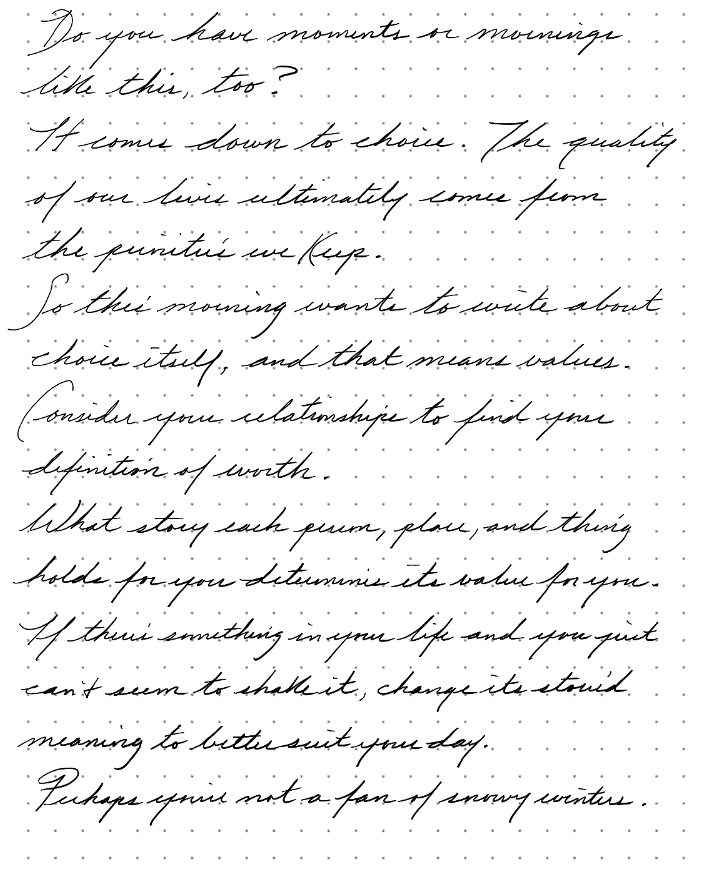 Do you have moments or mornings
like this, too?
It comes down to choice. The quality
of our lives ultimately comes from
the priorities we keep.
So this morning wants to write about
choice itself, and that means values.
Consider your relationships to find your
definition of worth.
What story each person, place, and thing
holds for you determines its value for you.
If there's something in your life and you just
can't seem to shake it, change its storied
meaning to better suit your day.
Perhaps you're not a fan of snowy winters.